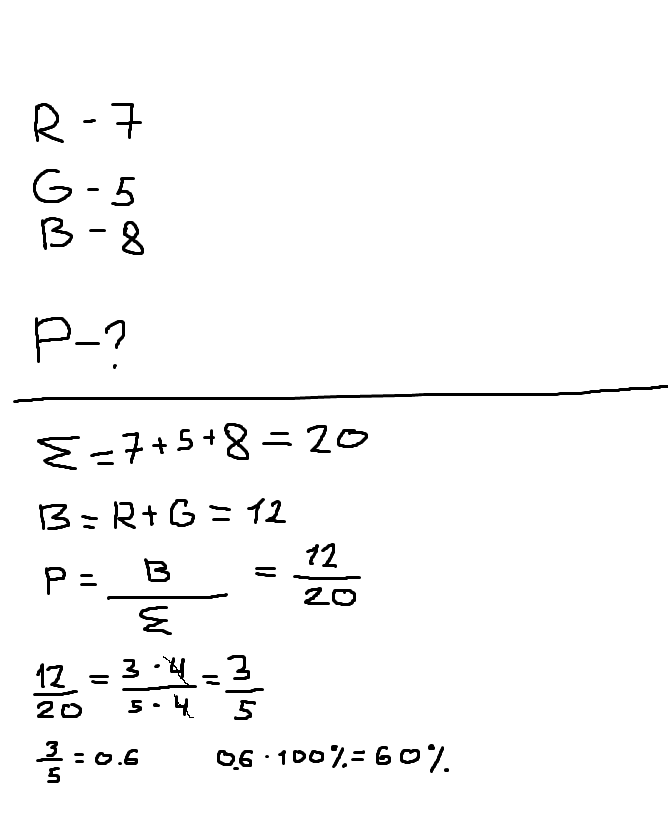 R - 7
G - 5
B - 8
P - ?
Σ = 7 + 5 + 8 = 20
B = R + G = 12
P = B/Σ = 12/20
12/20 = 3 · 4/5 · 4 = 3/5
3/5 = 0.6 0.6 · 100% = 60%